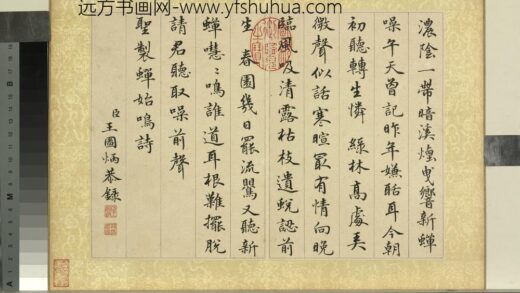 远方书画网--www.yfshuhua.com
濃陰一帶暗溪煙曳響新蟬
噪午天曾記昨年嫌聒耳今朝
初聽轉生憐 綠林高處奏
微聲似話寒暄最有情向晚
臨風吸清露枯枝遺蛻認前
生 春園幾日罷流鶯又聽新
蟬嘒〻鳴誰道耳根難擺脫
請君聽取噪前聲
聖製蟬始鳴詩
臣王圖炳恭錄